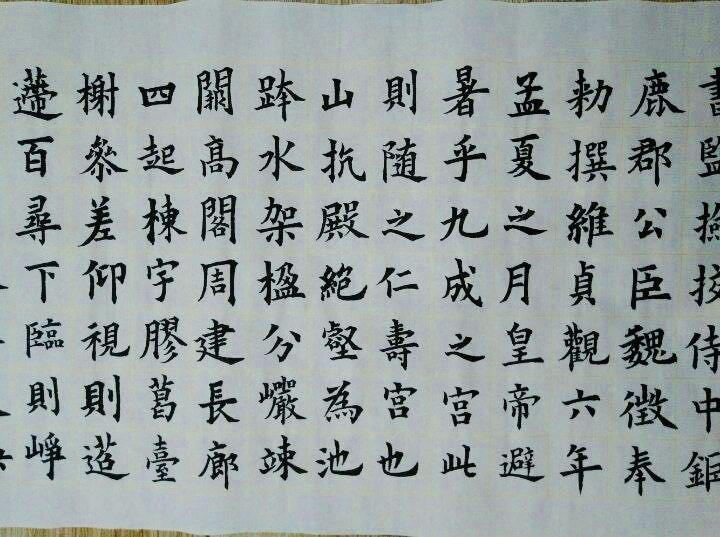 書監撿挍侍中鉅
鹿郡公臣魏徵奉
勑撰維貞觀六年
孟夏之月皇帝避
暑乎九成之宮此
則随之仁壽宮也
山抗殿絕壑為池
跨水架楹分巖竦
闕高閣周建長廊
四起棟宇膠葛臺
榭參差仰視則迢
遰百尋下臨則崢